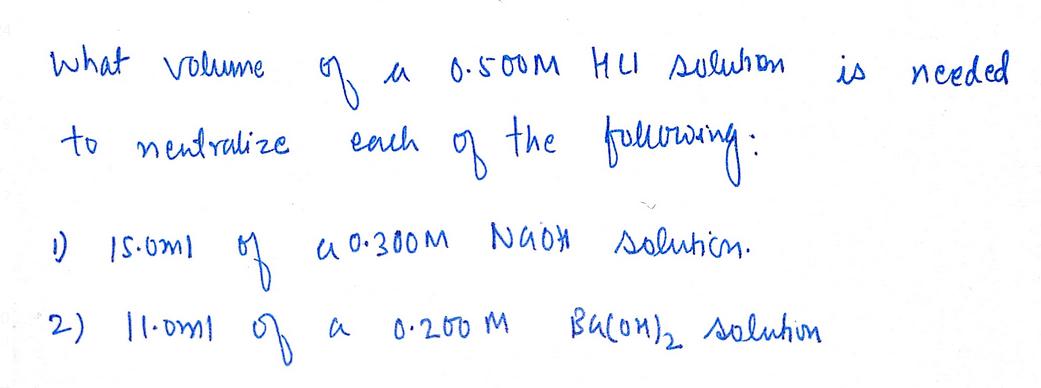 What volume of a 0.500M HCl solution is needed
to neutralize each of the following:
1) 15.0ml of a 0.300M NaOH solution.
2) 11.0ml of a 0.200 M Ba(OH)₂ solution